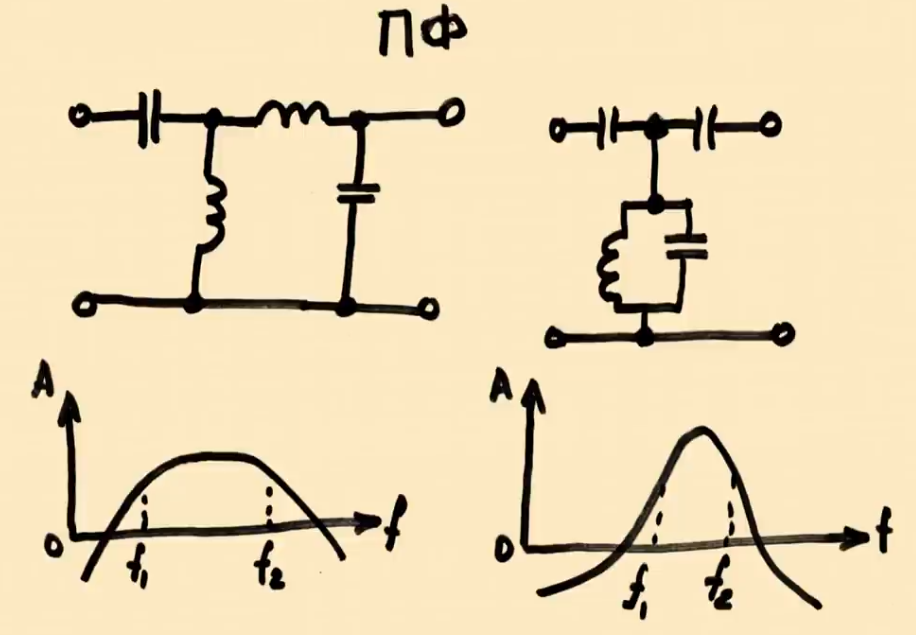 ПФ
A
0
f₁
f₂
f
A
0
f₁
f₂
f